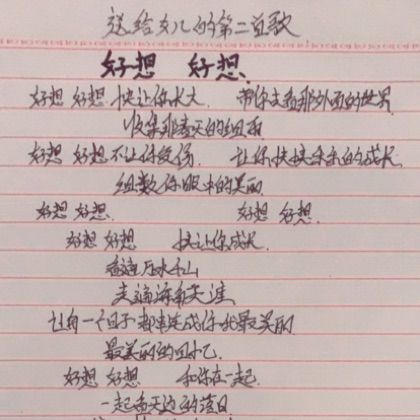 送给女儿的第二首歌
好想 好想
好想 好想 快让你长大 带你去看那外面的世界
收集那春天的细雨
好想 好想不让你受伤 让你快快乐乐的成长
细数你眼中的美丽
好想 好想 好想 好想
好想 好想 快让你成长
看遍万水千山
走遍海角天涯
让每一个日子都串连成你我最美丽
最美丽的回忆
好想 好想 和你在一起
一起看天边的落日